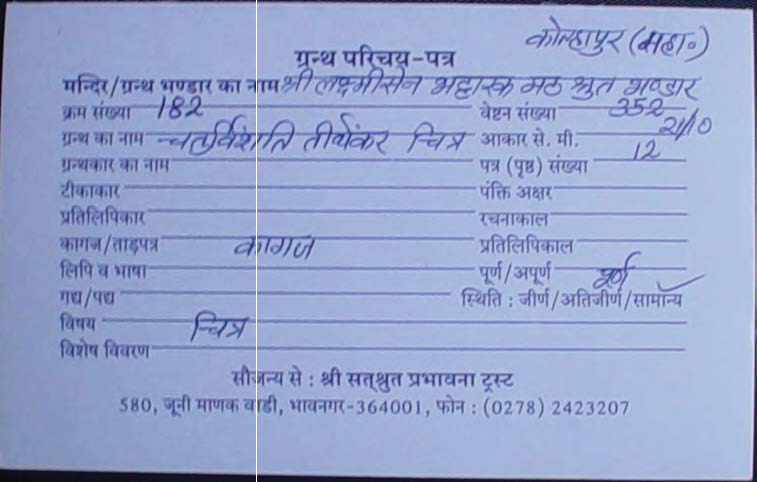 कोल्हापुर (महा०)
ग्रन्थ परिचय-पत्र
मन्दिर/ग्रन्थ भण्डार का नाम श्री लक्ष्मीसेन भट्टारक मठ श्रुत भण्डार
क्रम संख्या 182 वेष्टन संख्या 352
ग्रन्थ का नाम चतुर्विंशति तीर्थंकर चित्र आकार से. मी. 21/10
ग्रन्थकार का नाम पत्र (पृष्ठ) संख्या 12
टीकाकार पंक्ति अक्षर
प्रतिलिपिकार रचनाकाल
कागज/ताड़पत्र कागज प्रतिलिपिकाल
लिपि व भाषा पूर्ण/अपूर्ण पूर्ण
गद्य/पद्य स्थिति : जीर्ण/अतिजीर्ण/सामान्य
विषय चित्र
विशेष विवरण
सौजन्य से : श्री सत्श्रुत प्रभावना ट्रस्ट
580, जूनी माणक वाडी, भावनगर-364001, फोन : (0278) 2423207